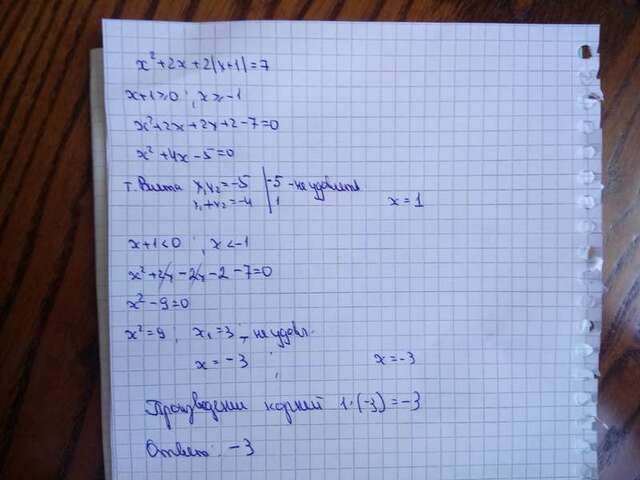 x²+2x+2|x+1|=7
x+1≥0 ; x≥-1
x²+2x+2x+2-7=0
x²+4x-5=0
т. Виета x₁x₂=-5 | -5 - не удовлетв
x₁+x₂=-4 | 1 x=1
x+1<0 ; x<-1
x²+2x-2x-2-7=0
x²-9=0
x²=9 ; x=3 - не удовл.
x=-3 ; x=-3
Произведение корней 1·(-3)=-3
Ответ: -3